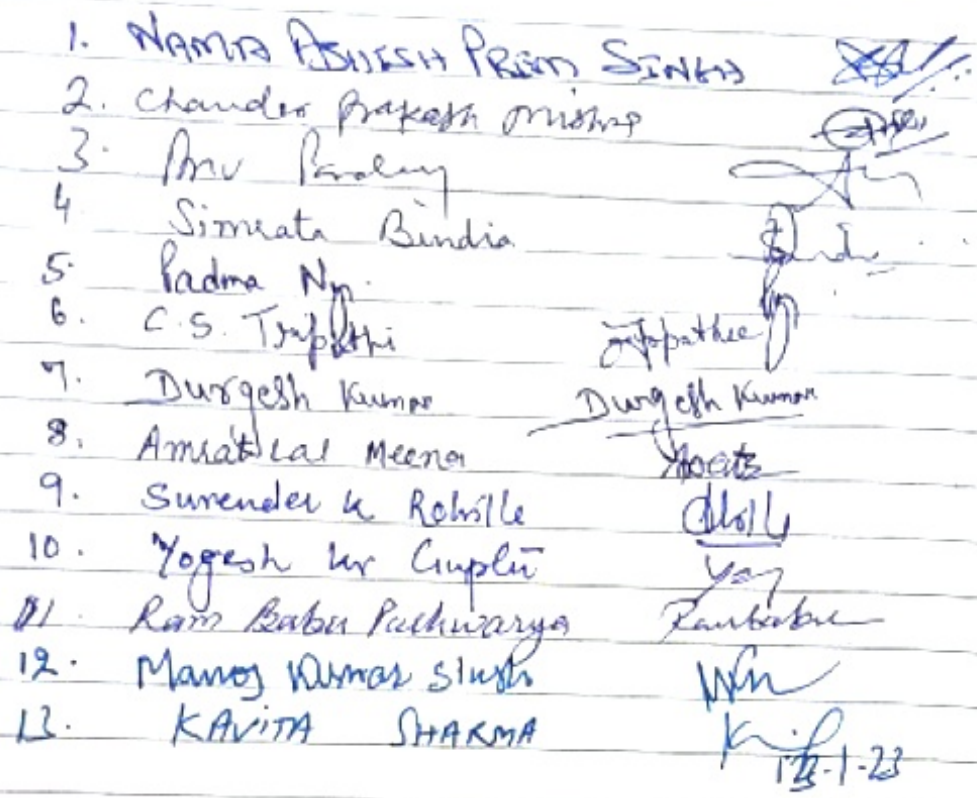 1. NAMITA ASHISH PREM SINGH
2. Chander Prakash Mishra
3. Anu Pandey
4 Simrata Bindia
5. Padma
6. C.S. Tripathi Tripathee
7. Durgesh Kumar Durgesh Kumar
8. Amrat Lal Meena
9. Surender K Rohilla
10. Yogesh kr Gupta Yog
11. Ram Babu Pachwarya Rambabu
12. Manoj Kumar Singh
13. KAVITA SHARMA
23-1-23